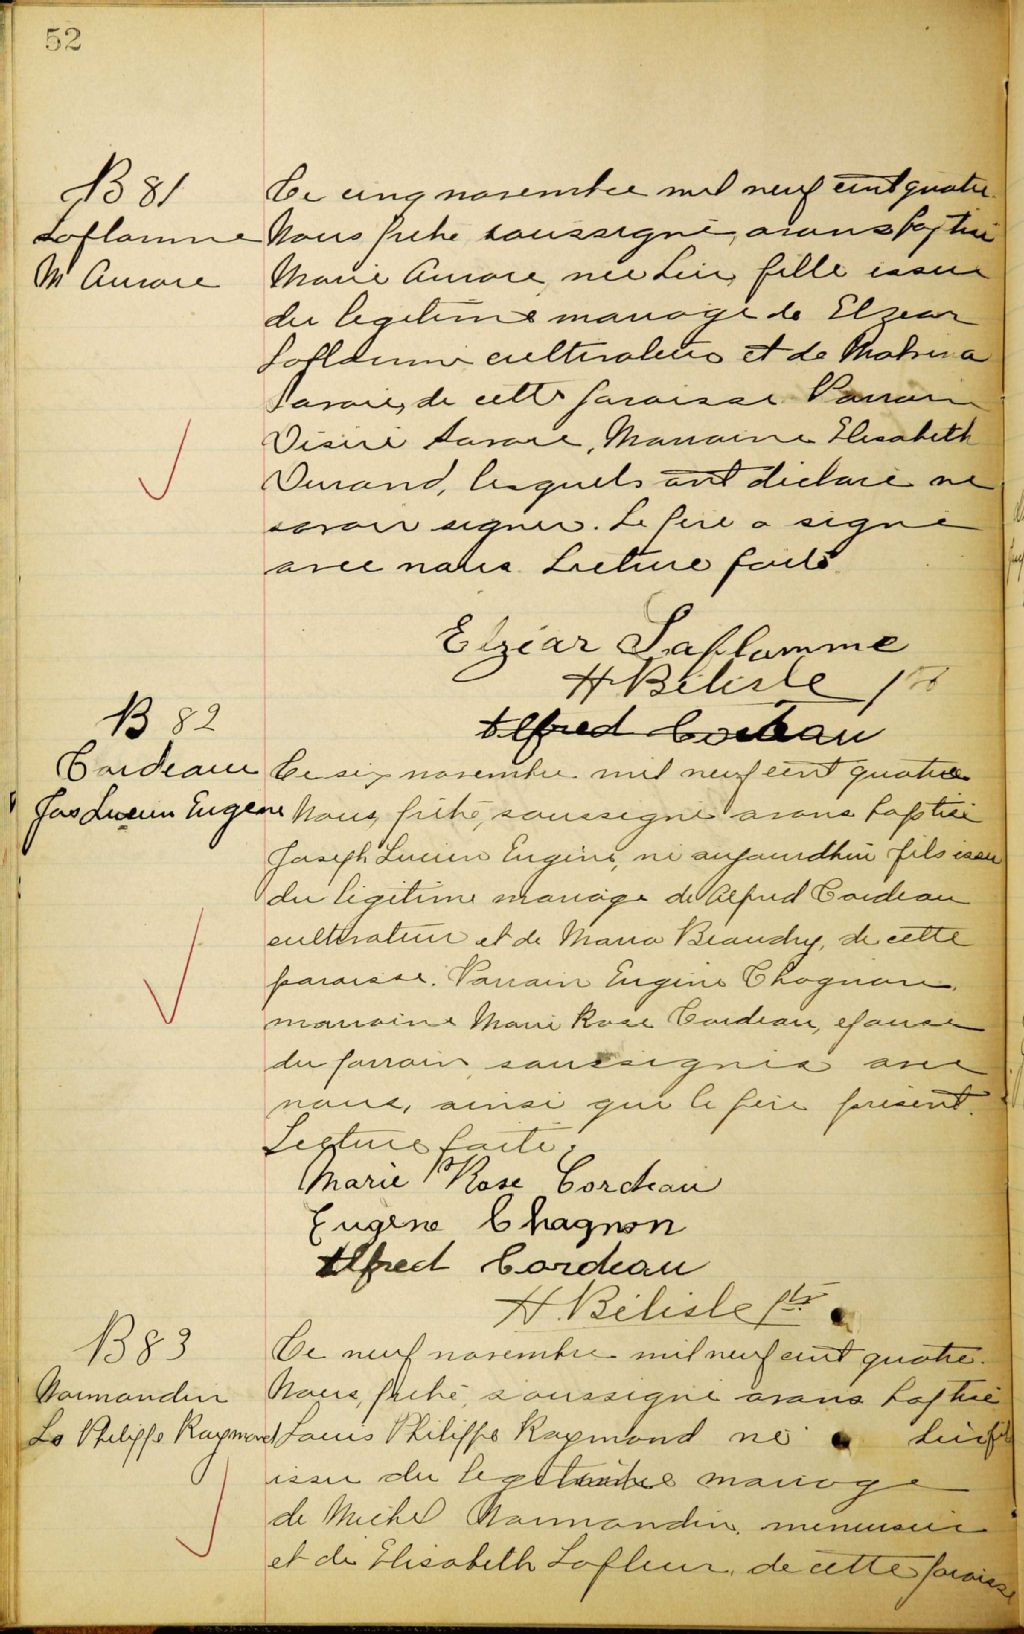 52
B 81
Laflamme
M Aurore
Ce cinq novembre mil neuf cent quatre.
Nous prêtre soussigné, avons baptisé
Marie Aurore, née hier, fille issue
du légitime mariage de Elzear
Laflamme cultivateur et de Malvina
Savoie, de cette paroisse. Parrain
Désiré Savoie, Marraine Elisabeth
Durand, lesquels ont déclaré ne
savoir signer. Le père a signé
avec nous. Lecture faite
Elzéar Laflamme
H Bélisle ptr
Alfred Cordeau
B 82
Cordeau
Jos Lucien Eugene
Ce six novembre mil neuf cent quatre
Nous, prêtre, soussigné avons baptisé
Joseph Lucien Eugène, né aujourdhui fils issu
du légitime mariage de Alfred Cordeau
cultivateur et de Maria Beaudry, de cette
paroisse. Parrain Eugène Chagnon,
marraine Marie Rose Cordeau, épouse
du parrain, soussignés avec
nous, ainsi que le père présent.
Lecture faite.
Marie Rose Cordeau
Eugène Chagnon
Alfred Cordeau
H. Bélisle ptr
B 83
Normandin
Ls Philippe Raymond
Ce neuf novembre mil neuf cent quatre.
Nous, prêtre, soussigné avons baptisé
Louis Philippe Raymond né hier fils
issu du légitime mariage
de Michel Normandin, menuisier
et de Elisabeth Lafleur, de cette paroisse